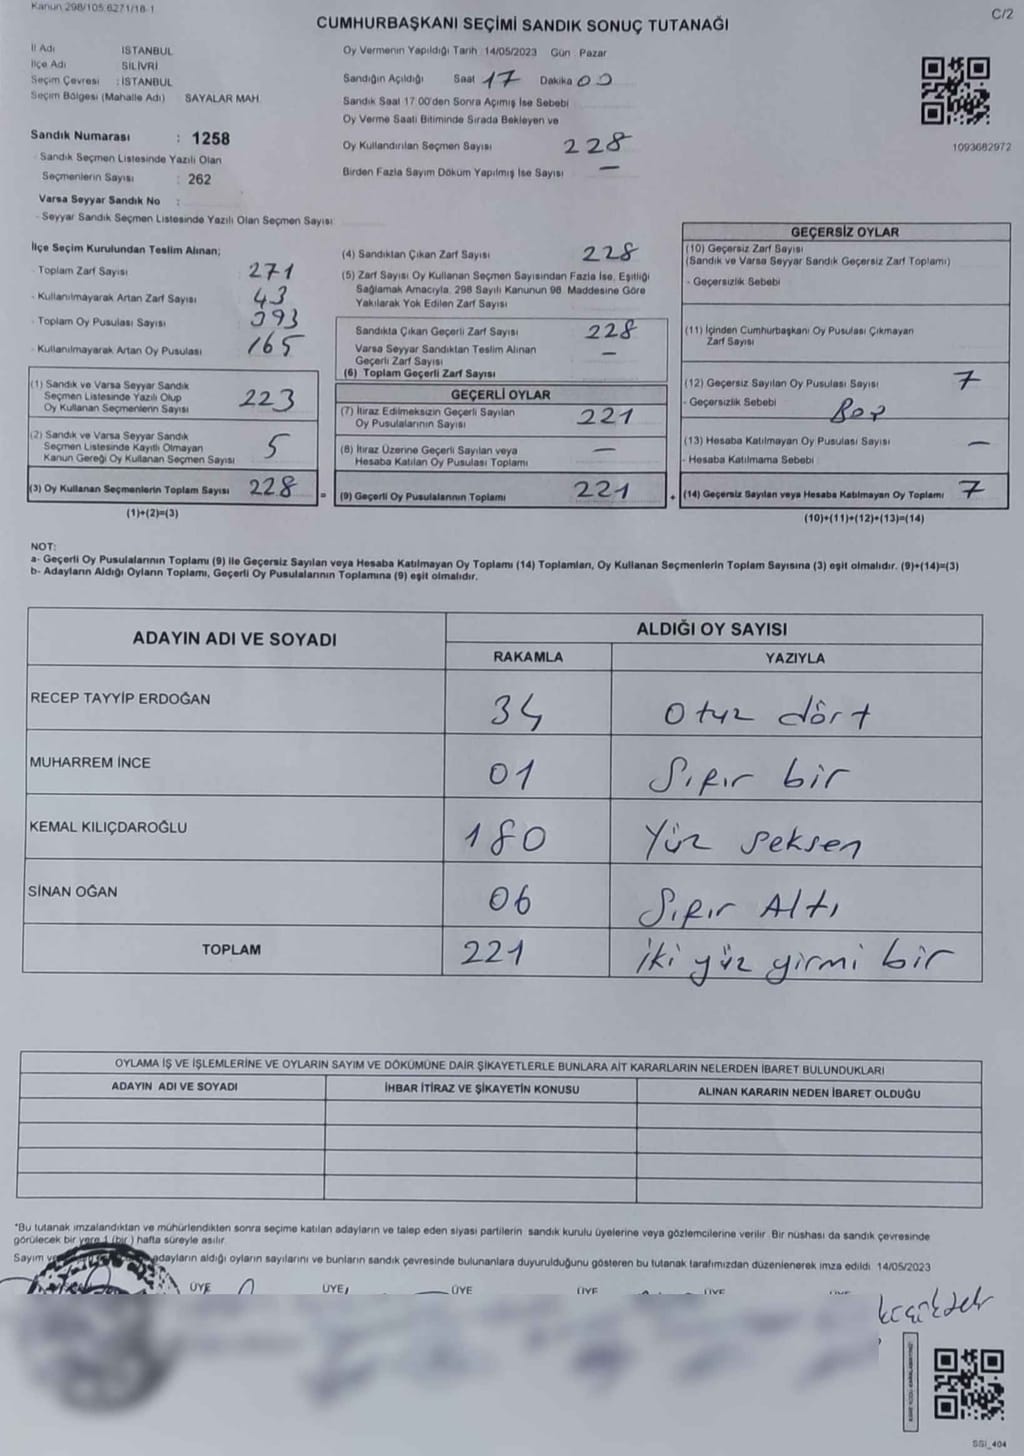 Kanun 298/105.6271/18-1
C/2
CUMHURBAŞKANI SEÇİMİ SANDIK SONUÇ TUTANAĞI
İl Adı İSTANBUL
İlçe Adı SİLİVRİ
Seçim Çevresi : İSTANBUL
Seçim Bölgesi (Mahalle Adı) SAYALAR MAH.
Sandık Numarası : 1258
- Sandık Seçmen Listesinde Yazılı Olan
Seçmenlerin Sayısı : 262
Varsa Seyyar Sandık No :
- Seyyar Sandık Seçmen Listesinde Yazılı Olan Seçmen Sayısı:
Oy Vermenin Yapıldığı Tarih 14/05/2023 Gün Pazar
Sandığın Açıldığı Saat 17 Dakika 00
Sandık Saat 17:00'den Sonra Açımış İse Sebebi
Oy Verme Saati Bitiminde Sırada Bekleyen ve
Oy Kullandırılan Seçmen Sayısı 228
Birden Fazla Sayım Döküm Yapılmış İse Sayısı —
1093682972
İlçe Seçim Kurulundan Teslim Alınan;
- Toplam Zarf Sayısı 271
- Kullanılmayarak Artan Zarf Sayısı 43
- Toplam Oy Pusulası Sayısı 393
- Kullanılmayarak Artan Oy Pusulası 165
(1) Sandık ve Varsa Seyyar Sandık
Seçmen Listesinde Yazılı Olup
Oy Kullanan Seçmenlerin Sayısı 223
(2) Sandık ve Varsa Seyyar Sandık
Seçmen Listesinde Kayıtlı Olmayan
Kanun Gereği Oy Kullanan Seçmen Sayısı 5
(3) Oy Kullanan Seçmenlerin Toplam Sayısı 228 =
(1)+(2)=(3)
(4) Sandıktan Çıkan Zarf Sayısı 228
(5) Zarf Sayısı Oy Kullanan Seçmen Sayısından Fazla İse, Eşitliği
Sağlamak Amacıyla, 298 Sayılı Kanunun 98. Maddesine Göre
Yakılarak Yok Edilen Zarf Sayısı
Sandıkta Çıkan Geçerli Zarf Sayısı 228
Varsa Seyyar Sandıktan Teslim Alınan
Geçerli Zarf Sayısı —
(6) Toplam Geçerli Zarf Sayısı
GEÇERLİ OYLAR
(7) İtiraz Edilmeksizin Geçerli Sayılan
Oy Pusulalarının Sayısı 221
(8) İtiraz Üzerine Geçerli Sayılan veya
Hesaba Katılan Oy Pusulası Toplamı —
(9) Geçerli Oy Pusulalarının Toplamı 221 +
GEÇERSİZ OYLAR
(10) Geçersiz Zarf Sayısı
(Sandık ve Varsa Seyyar Sandık Geçersiz Zarf Toplamı)
- Geçersizlik Sebebi
(11) İçinden Cumhurbaşkanı Oy Pusulası Çıkmayan
Zarf Sayısı
(12) Geçersiz Sayılan Oy Pusulası Sayısı 7
- Geçersizlik Sebebi
(13) Hesaba Katılmayan Oy Pusulası Sayısı —
- Hesaba Katılmama Sebebi
(14) Geçersiz Sayılan veya Hesaba Katılmayan Oy Toplamı 7
(10)+(11)+(12)+(13)=(14)
NOT:
a- Geçerli Oy Pusulalarının Toplamı (9) ile Geçersiz Sayılan veya Hesaba Katılmayan Oy Toplamı (14) Toplamları, Oy Kullanan Seçmenlerin Toplam Sayısına (3) eşit olmalıdır. (9)+(14)=(3)
b- Adayların Aldığı Oyların Toplamı, Geçerli Oy Pusulalarının Toplamına (9) eşit olmalıdır.
ADAYIN ADI VE SOYADI
ALDIĞI OY SAYISI
RAKAMLA YAZIYLA
RECEP TAYYİP ERDOĞAN 34 Otuz dört
MUHARREM İNCE 01 Sıfır bir
KEMAL KILIÇDAROĞLU 180 Yüz seksen
SİNAN OĞAN 06 Sıfır Altı
TOPLAM 221 İki yüz yirmi bir
OYLAMA İŞ VE İŞLEMLERİNE VE OYLARIN SAYIM VE DÖKÜMÜNE DAİR ŞİKAYETLERLE BUNLARA AİT KARARLARIN NELERDEN İBARET BULUNDUKLARI
ADAYIN ADI VE SOYADI İHBAR İTİRAZ VE ŞİKAYETİN KONUSU ALINAN KARARIN NEDEN İBARET OLDUĞU
*Bu tutanak imzalandıktan ve mühürlendikten sonra seçime katılan adayların ve talep eden siyasi partilerin sandık kurulu üyelerine veya gözlemcilerine verilir. Bir nüshası da sandık çevresinde
görülecek bir yere 1 (bir) hafta süreyle asılır.
Sayım ve adayların aldığı oyların sayılarını ve bunların sandık çevresinde bulunanlara duyurulduğunu gösteren bu tutanak tarafımızdan düzenlenerek imza edildi. 14/05/2023
ÜYE ÜYE ÜYE ÜYE ÜYE
SSI_404